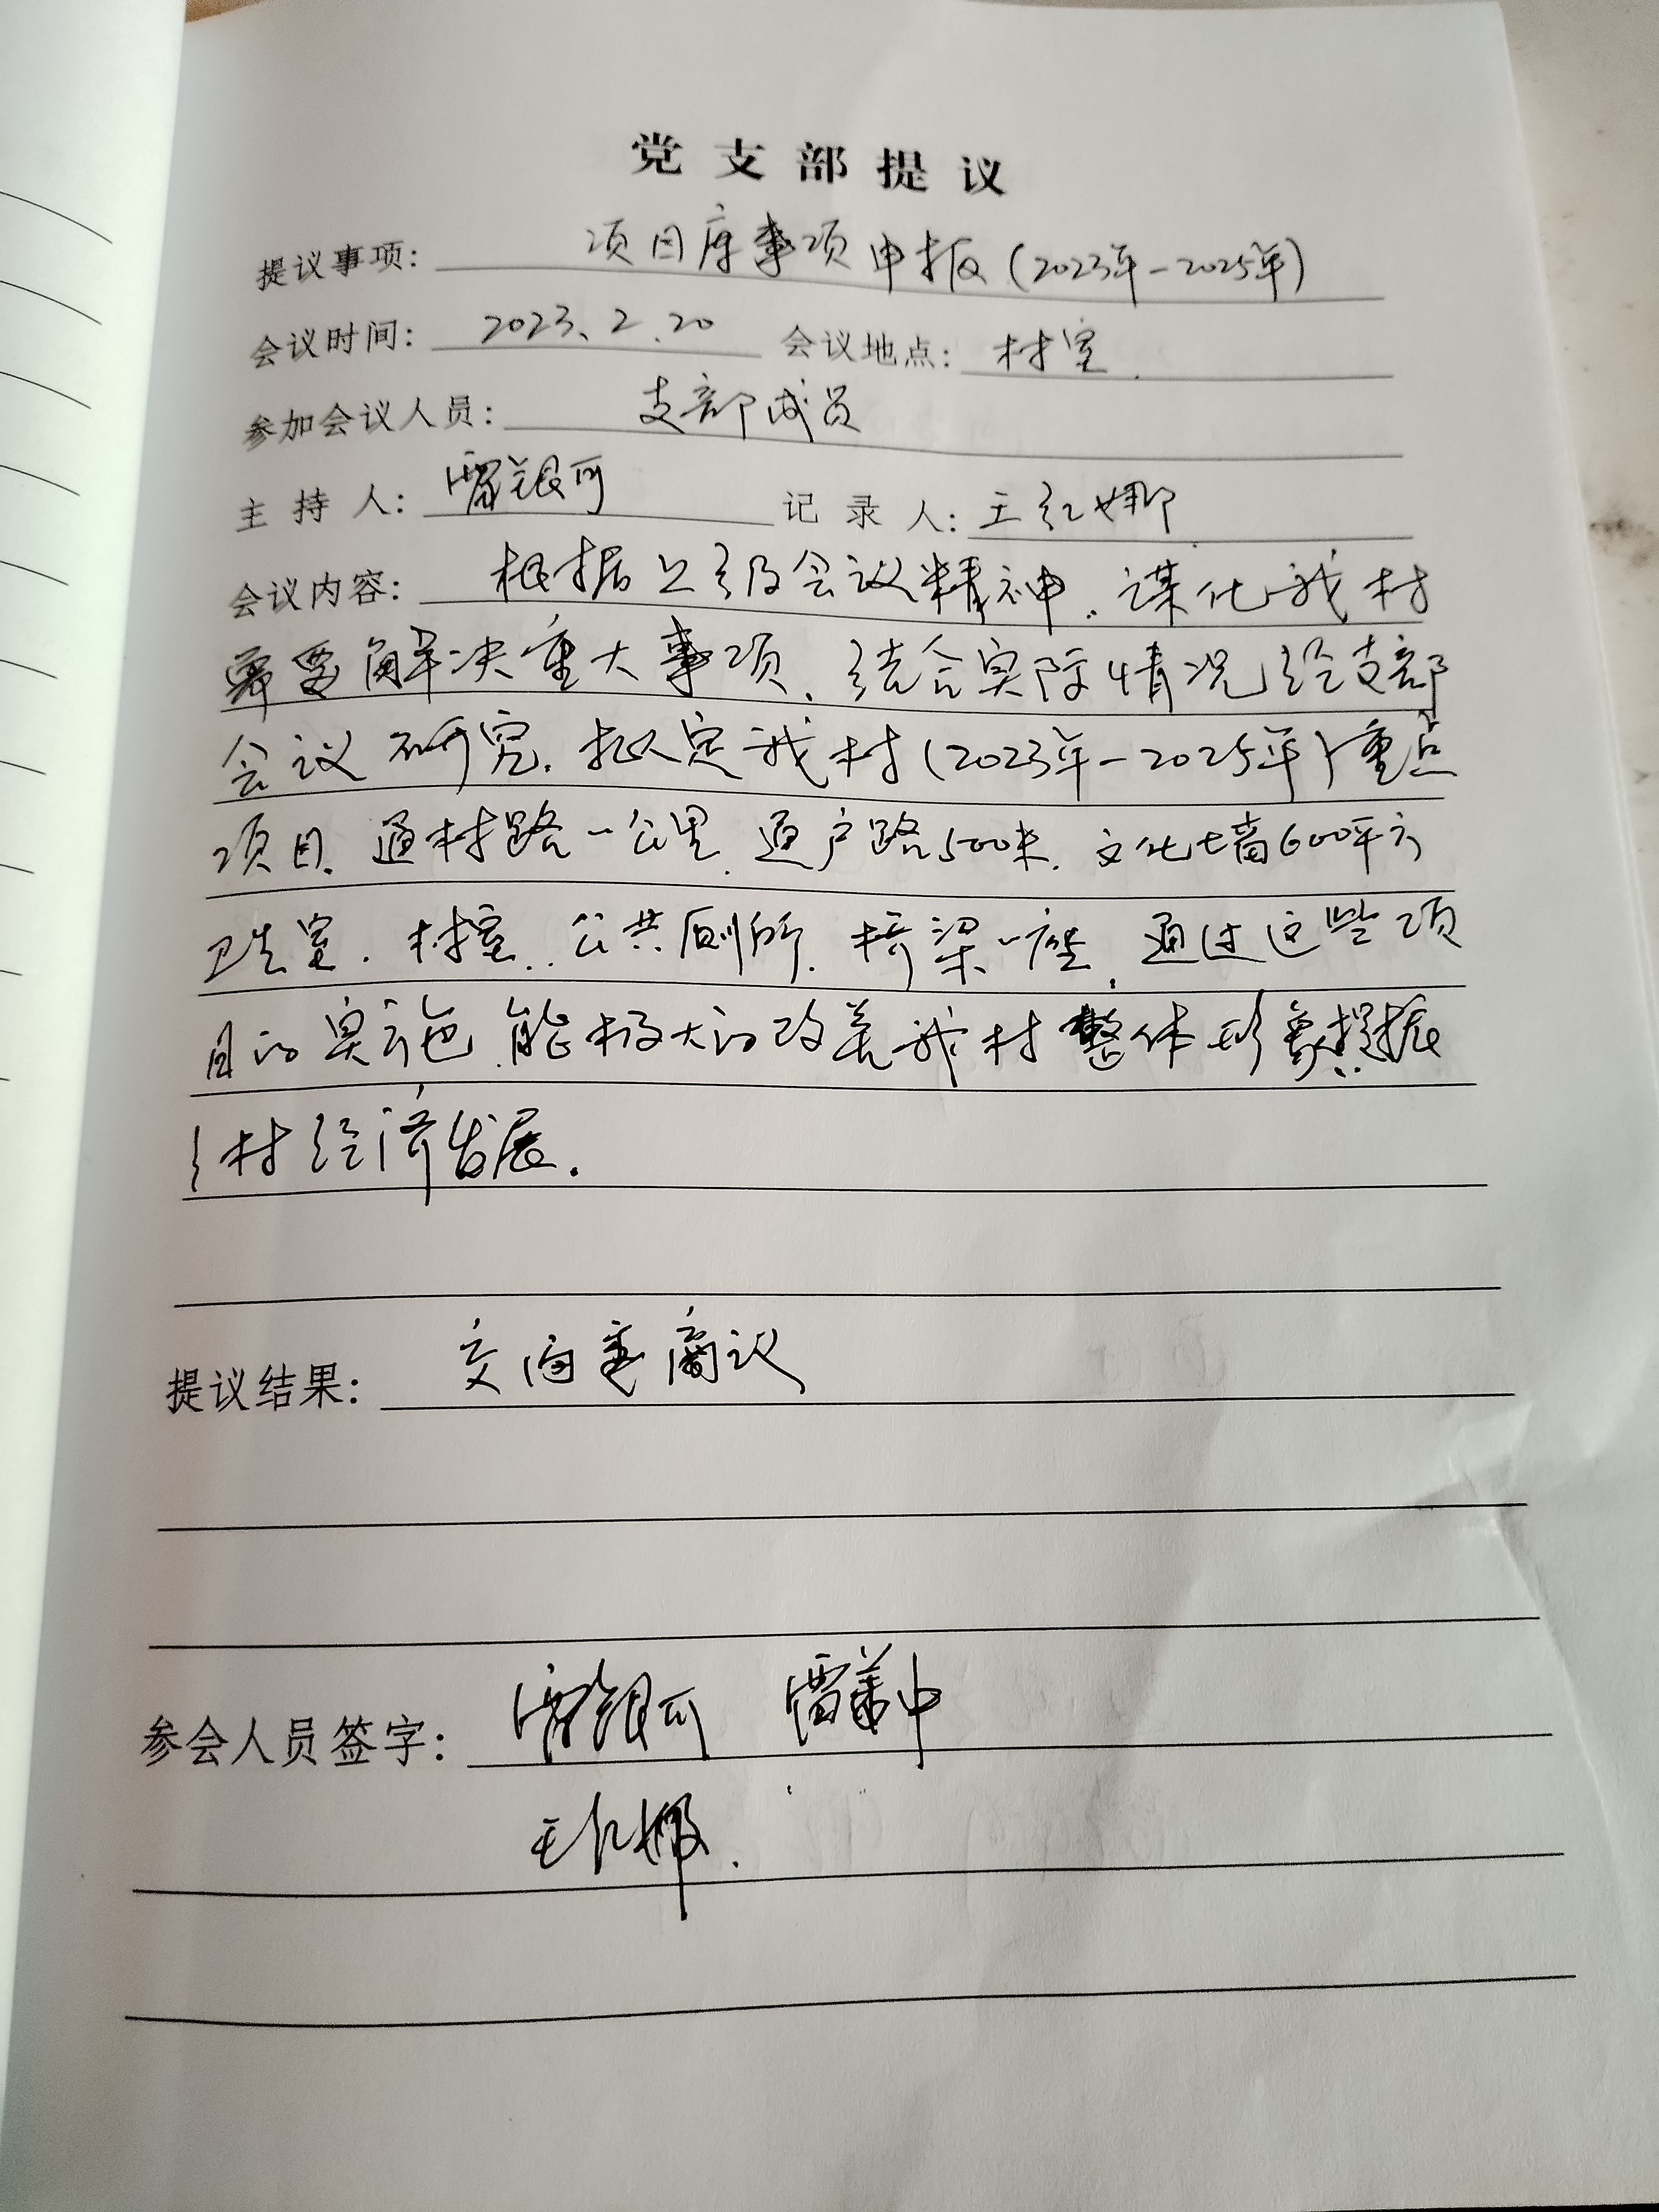 党支部提议
提议事项: 项目库事项申报(2023年-2025年)
会议时间: 2023、2.20 会议地点: 村室.
参加会议人员: 支部成员
主持人: 雷银河 记录人: 王红娜
会议内容: 根据上级会议精神.谋化我村
需要解决重大事项.结合实际情况经支部
会议研究.拟定我村(2023年-2025年)重点
项目.通村路一公里.通户路500米.文化墙600平方
卫生室.村室..公共厕所.桥梁一座.通过这些项
目的实施.能极大的改善我村整体形象提振
村经济发展.
提议结果: 交两委商议
参会人员签字: 雷银河 雷
王红娜.